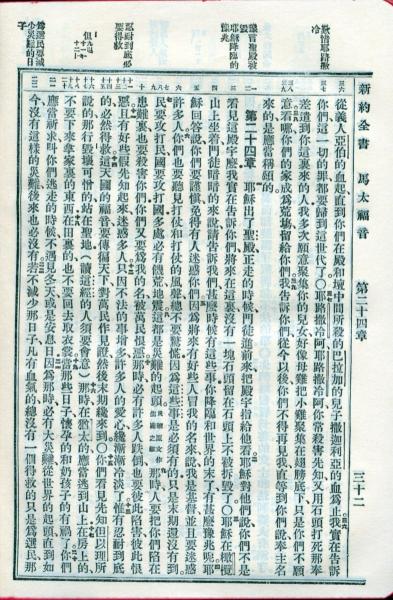 新約全書 馬太福音 第二十四章 三十二
歎惜耶路撒冷
從義人亞伯的血起直到你們在殿和壇中間所殺的巴拉加的兒子撒迦利亞的血爲止我實在告訴
你們這一切的罪都要歸到這世代了○耶路撒冷阿耶路撒冷阿你常殺害先知又用石頭打死那奉
差遣到你這裏來的人我多次願意聚集你的兒女好像母雞把小雞聚集在翅膀底下只是你們不願
意看哪你們的家成爲荒場留給你們我告訴你們從今以後你們不得再見我直等到你們說奉主名
來的是應當稱頌的
聖殿被
耶穌降臨的
豫兆
第二十四章 耶穌出了聖殿正走的時候門徒進前來把殿宇指給他看耶穌對他們說你們不是
看見這殿宇麼我實在告訴你們將來在這裏沒有一塊石頭留在石頭上不被拆毀了○耶穌在橄欖
山上坐着門徒暗暗的來說請告訴我們甚麼時候有這些事你降臨和世界的末了有甚麼豫兆呢耶
穌回答說你們要謹愼免得有人迷惑你們因爲將來有好些人冒我的名來說我是基督並且要迷惑
許多人你們也要聽見打仗和打仗的風聲總不要驚慌因爲這些事是必須有的只是末期還沒有到
民要攻打民國要攻打國多處必有饑荒地震這都是災難的起頭那時人要把你們陷在
患難裏也要殺害你們你們又要爲我的名被萬民恨惡那時必有許多人跌倒也要彼此陷害彼此恨
忍耐到底那
要得救
惡且有好些假先知起來迷惑多人只因不法的事增多許多人的愛心纔漸漸冷淡了惟有忍耐到底
的必然得救這天國的福音要傳徧天下對萬民作見證然後末期纔來到○你們看見先知但以理所
說的那行毀壞可憎的站在聖地(讀這經的人須要會意)那時在猶太的應當逃到山上在房上的
不要下來拿家裏的東西在田裏的也不要回去取衣裳當那些日子懷孕的和奶孩子的有禍了你們
爲選民要減
少災難的日
子
應當祈求叫你們逃走的時候不遇見冬天或是安息日因爲那時必有大災難從世界的起頭直到如
今沒有這樣的災難後來也必沒有若不減少那日子凡有血氣的總沒有一個得救的只是爲選民那